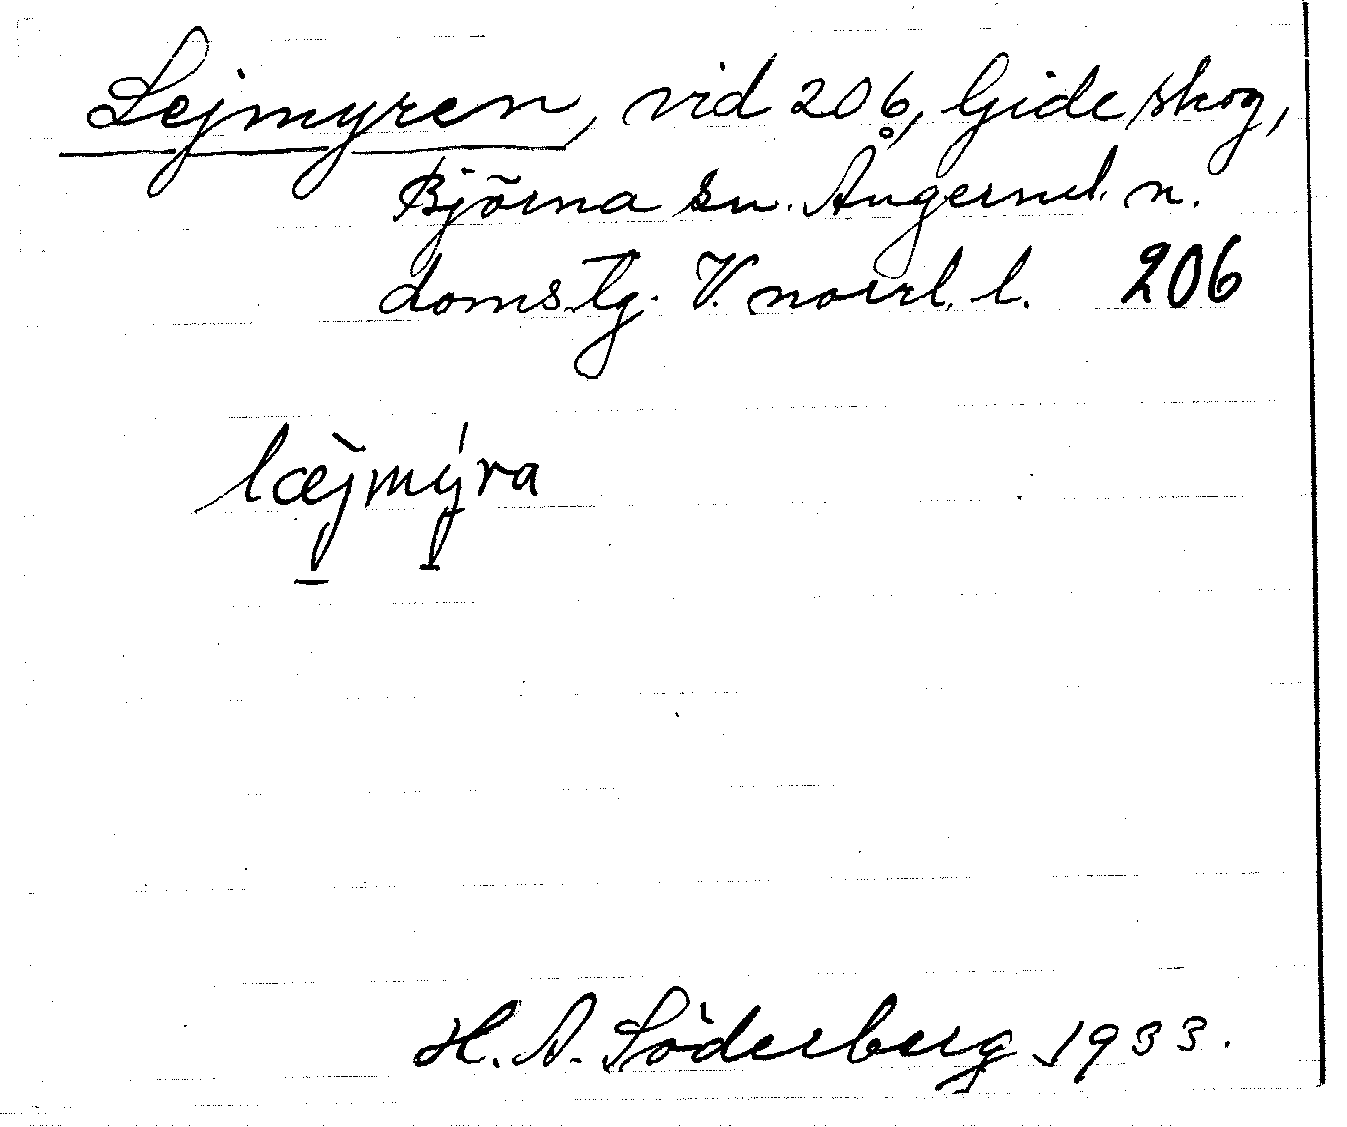 Lejmyren, vid 206, Gideskog,
Björna sn. Ångerml. n.
doms.tg. V. norrl. l. 206
læ̀jmýra
H. A. Söderberg 1933.